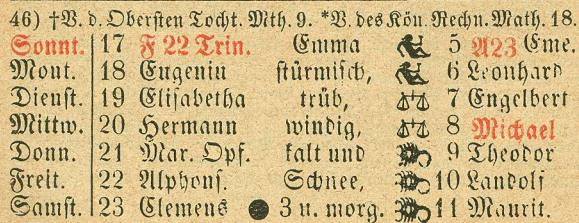 46) †V. d. Obersten Tocht. Mth. 9. *V. des Kön. Rechn. Math. 18.
Sonnt. 17 F 22 Trin. Emma 5 A23 Eme.
Mont. 18 Eugeniu stürmisch, 6 Leonhard
Dienst. 19 Elisabetha trüb, 7 Engelbert
Mittw. 20 Hermann windig, 8 Michael
Donn. 21 Mar. Opf. kalt und 9 Theodor
Freit. 22 Alphons. Schnee, 10 Landolf
Samst. 23 Clemens ● 3 u. morg. 11 Maurit.